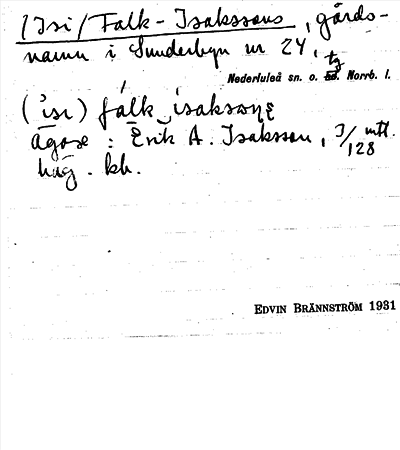 /Isi/ Falk-Isakssons, gårds-
namn i Sunderbyn nr 24,
tg
Nederluleå sn. o. sd. Norrb. l.
(isi) fálk isaksonς
Ägare: Erik A. Isaksson, 3/128 mtl.
häg. kh.
EDVIN BRÄNNSTRÖM 1931